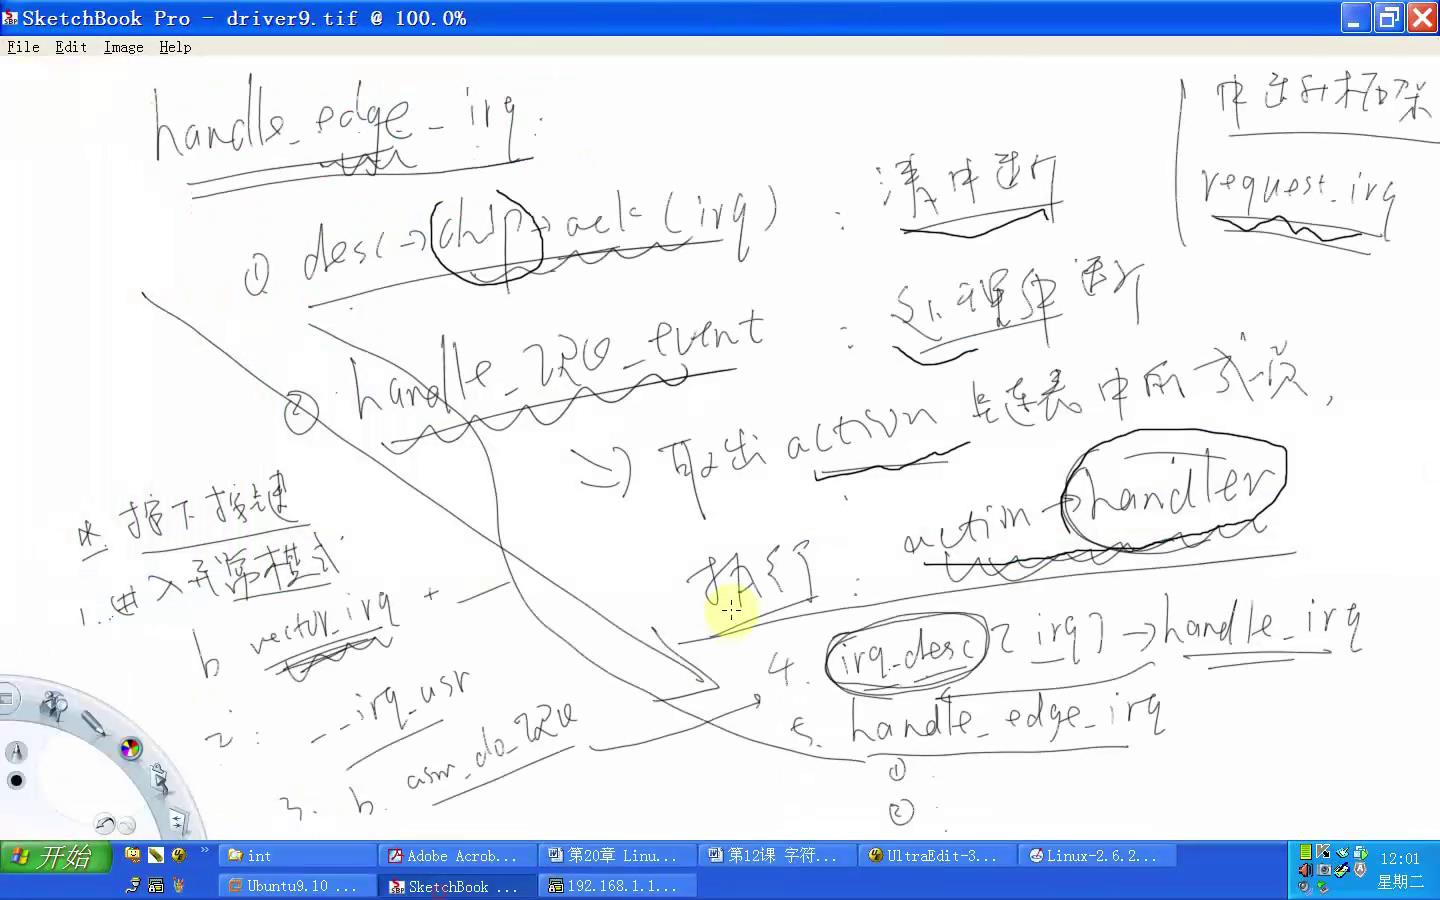 SketchBook Pro - driver9.tif @ 100.0%
File Edit Image Help
handle_edge_irq
① desc→chip→ack(irq) : 清中断
② handle_IRQ_event : 处理中断
⇒ 取出action链表中的成员,
执行: action→handler
中断框架
request_irq
* 按下按键
1. 进入异常模式
b vector_irq +
2: __irq_usr
3. b. asm_do_IRQ
4. irq_desc[irq]→handle_irq
5. handle_edge_irq
①
②
开始
int
Adobe Acrob...
第20章 Linu...
第12课 字符...
UltraEdit-3...
Linux-2.6.2...
12:01
Ubuntu9.10 ...
SketchBook ...
192.168.1.1...
星期二